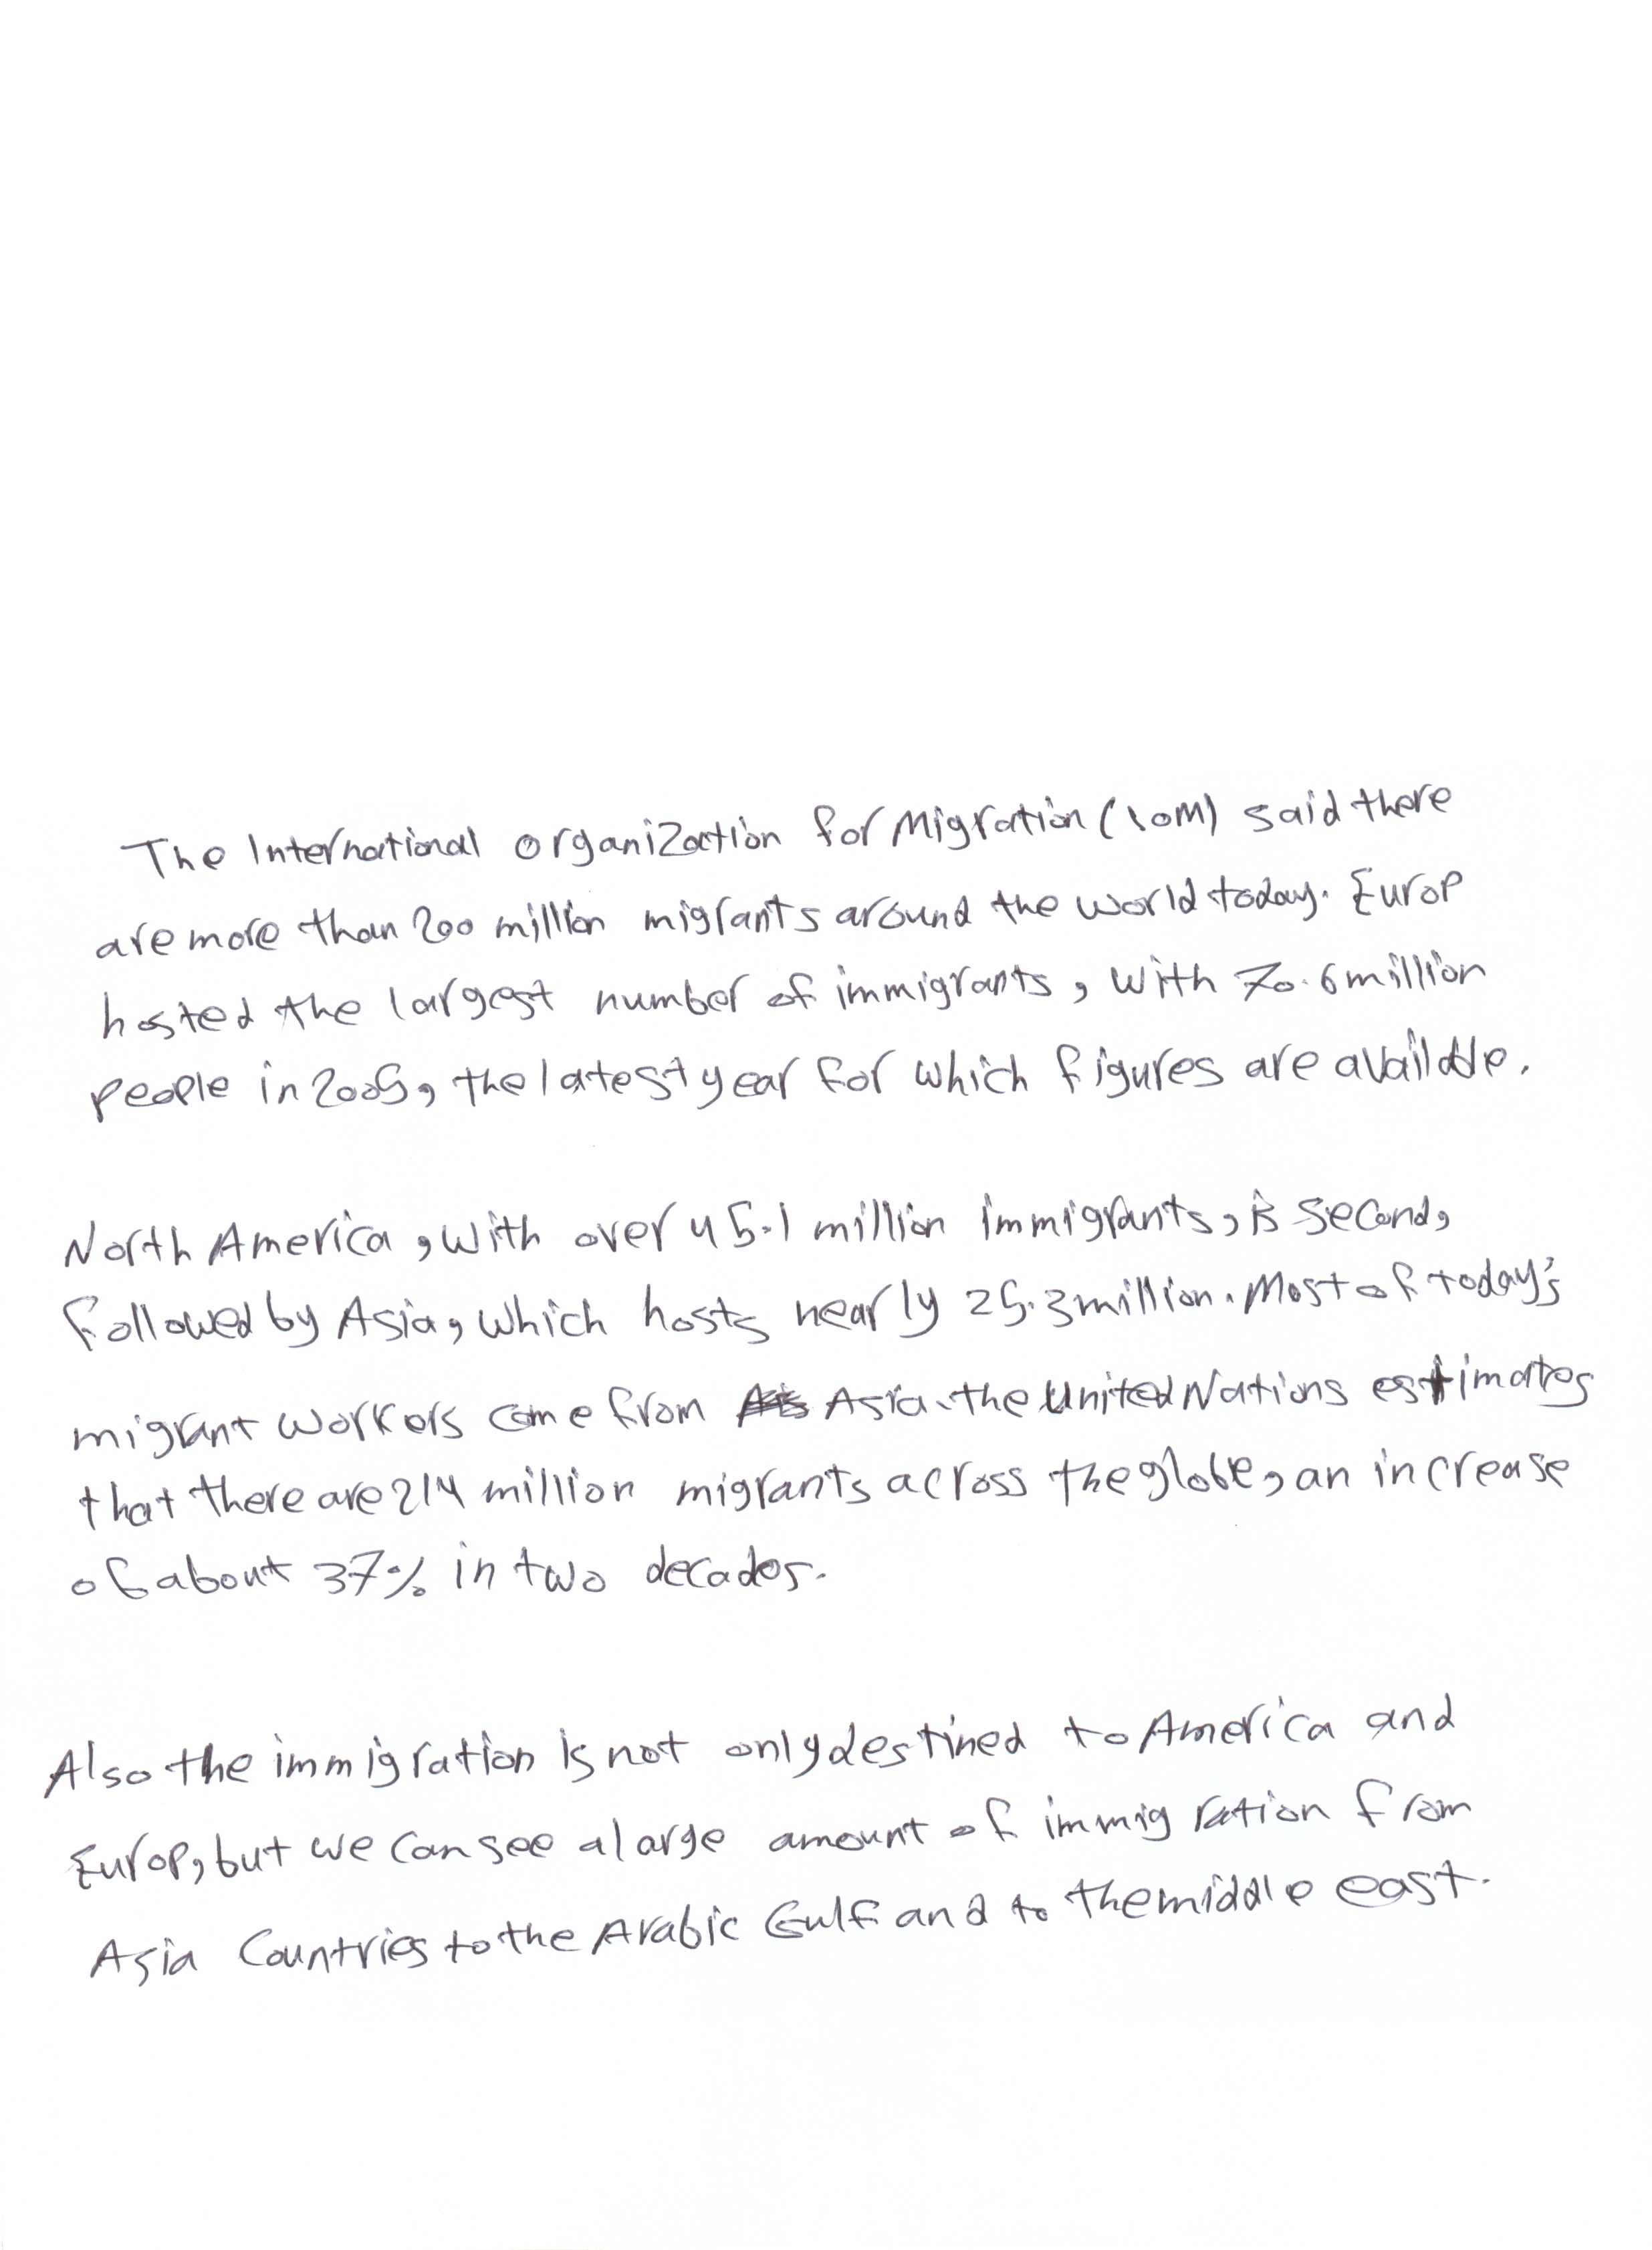 The International organization for Migration (IOM) said there
are more than 200 million migrants around the world today. Europ
hosted the largest number of immigrants, with 70.6 million
people in 2005, the latest year for which figures are available.
North America, with over 45.1 million immigrants, is second,
followed by Asia, which hosts nearly 25.3 million. Most of today's
migrant workers come from Asia. the United Nations estimates
that there are 214 million migrants across the globe, an increase
of about 37% in two decades.
Also the immigration is not only destined to America and
Europ, but we can see a large amount of immigration from
Asia Countries to the Arabic Gulf and to the middle east.